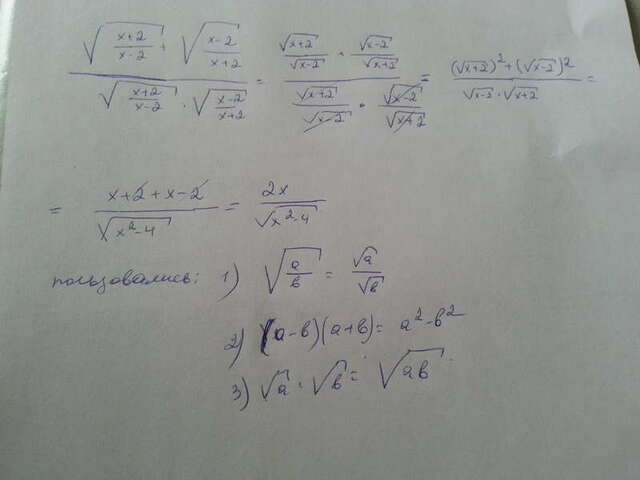 √((x+2)/(x-2)) + √((x-2)/(x+2)) / √((x+2)/(x-2)) · √((x-2)/(x+2)) = √(x+2)/√(x-2) + √(x-2)/√(x+2) / √(x+2)/√(x-2) · √(x-2)/√(x+2) = (√(x+2))² + (√(x-2))² / √(x-2) · √(x+2) =
= x+2+x-2 / √(x²-4) = 2x / √(x²-4)
пользовались: 1) √(a/b) = √a/√b
2) (a-b)(a+b) = a²-b²
3) √a · √b = √(ab)